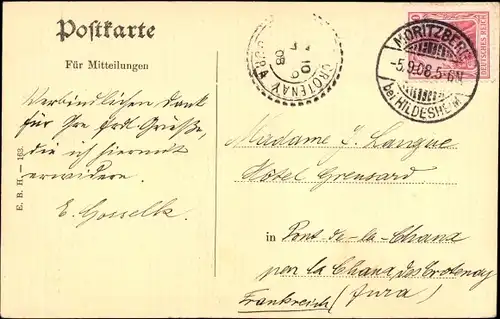 Postkarte
Für Mitteilungen
Verbindlichen Dank
für Ihre frdl. Grüße,
die ich hiermit
erwidere.
E. Gosselk
E. B. H. — 163.
CROTENAY
JURA
10 9
08
MORITZBERG
-5.9.08.5-6N
bei HILDESHEIM
DEUTSCHES REICH
Madame J. Langue
Hôtel Grensard
in Pont-de-la-Chaux
par la Chaux des Crotenay
Frankreich (Jura)